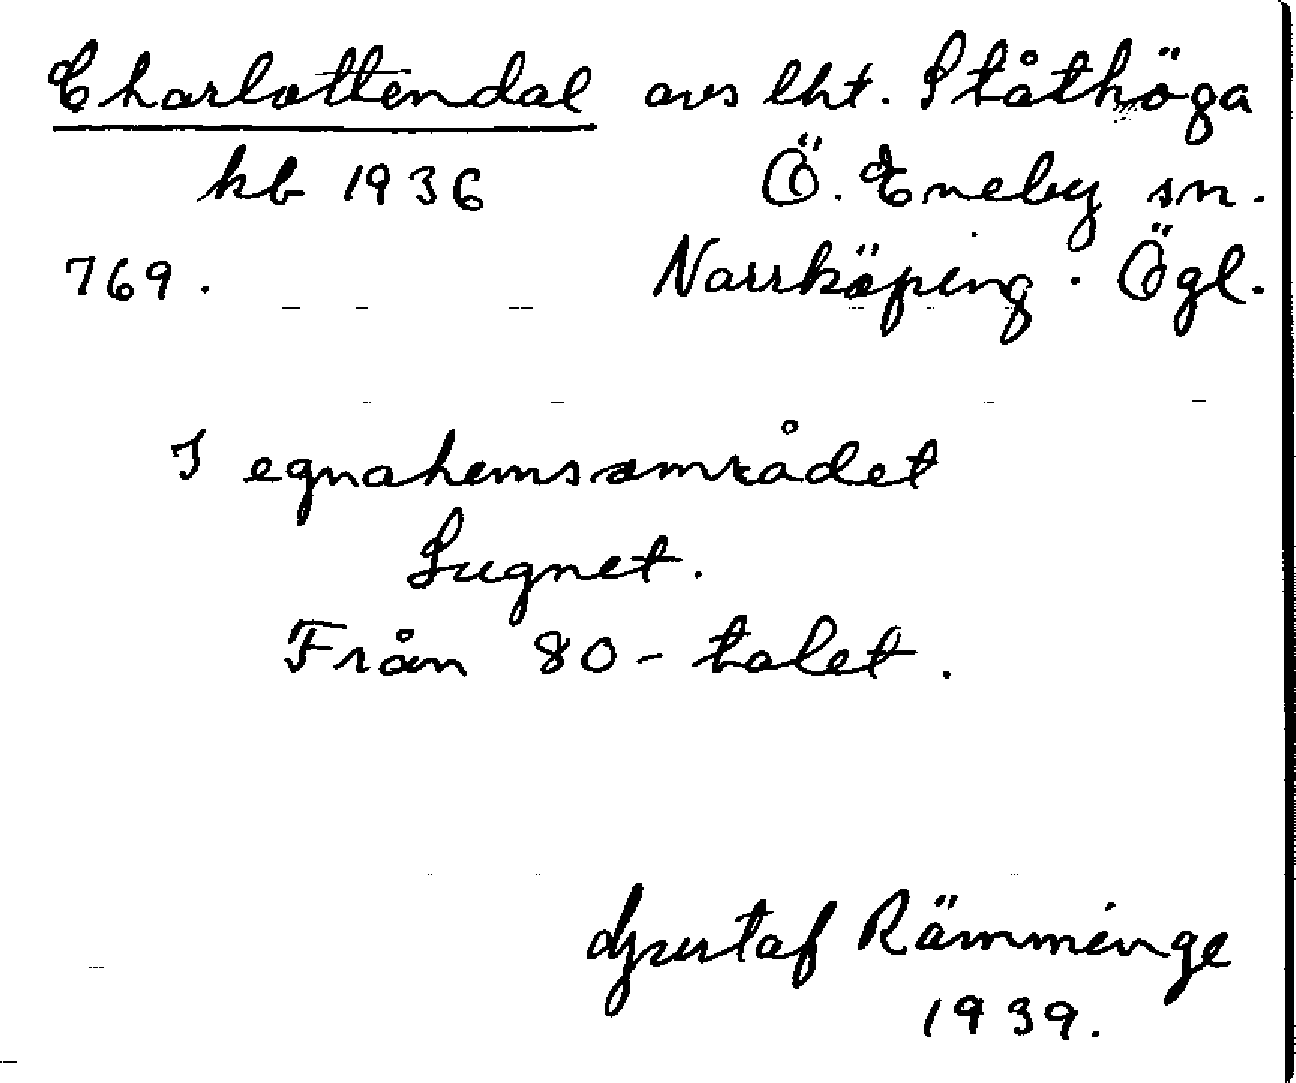 Charlottendal avs lht. Ståthöga
kb 1936 Ö. Eneby sn.
769. Norrköping. Ögl.
I egnahemsområdet
Lugnet.
Från 80-talet.
Gustaf Rämminge
1939.